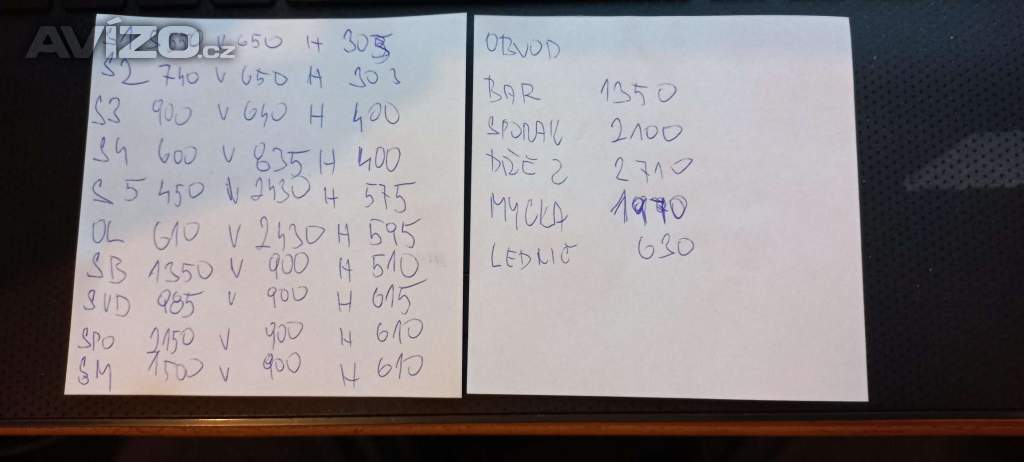 AVÍZO.cz
V 650 H 305
S2 740 V 650 H 303
S3 900 V 640 H 400
S4 600 V 835 H 400
S5 450 V 2430 H 575
OL 610 V 2430 H 595
SB 1350 V 900 H 510
SVD 985 V 900 H 615
SPO 2150 V 900 H 610
SM 1500 V 900 H 610
OBVOD
BAR 1350
SPORAK 2100
DŘEZ 2710
MYCKA 1970
LEDNIC 630